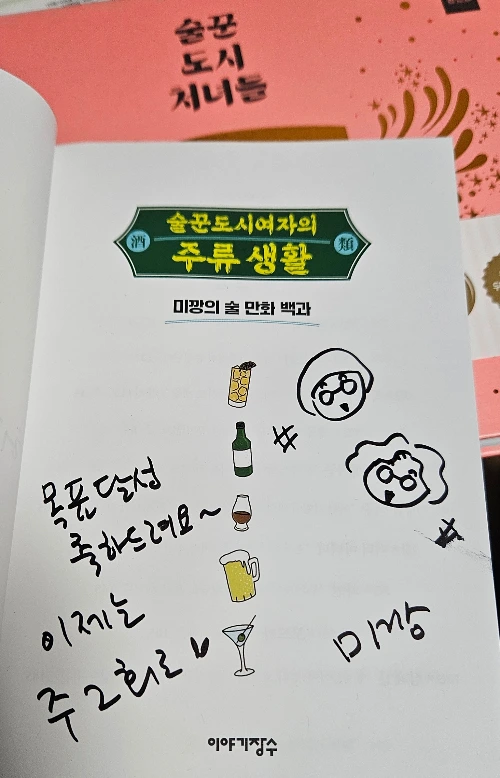 술꾼
도시
처녀들
술꾼도시여자의
酒 주류 생활 類
미깡의 술 만화 백과
#
#
목표달성
축하드려요~
이제는
주2회로
미깡
이야기장수